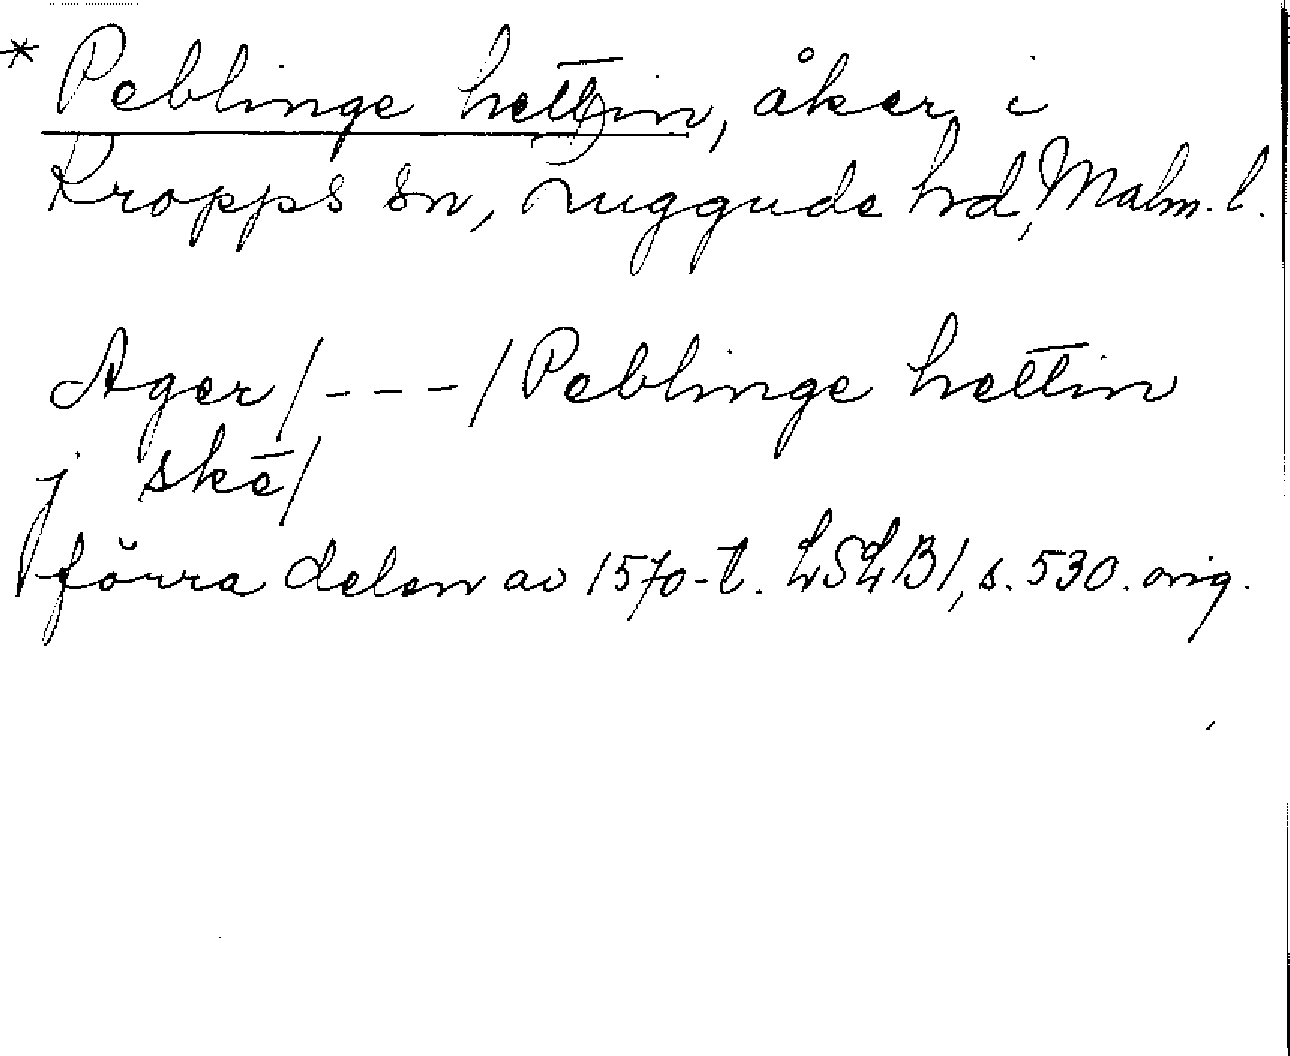 * Peblinge hettin, åker i
Kropps sn, Luggude hrd, Malm. l.
Ager / - - - / Peblinge hettin
j skē/
förra delen av 1570-t. LSLB1, s. 530. orig.